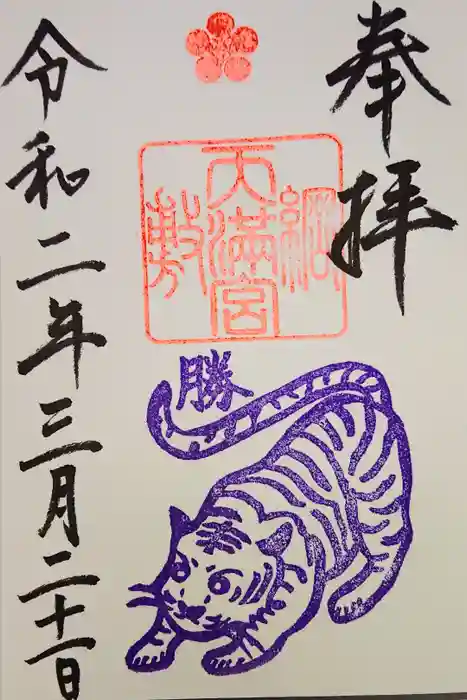 奉拝
綱敷
天満宮
勝
令和二年三月二十一日